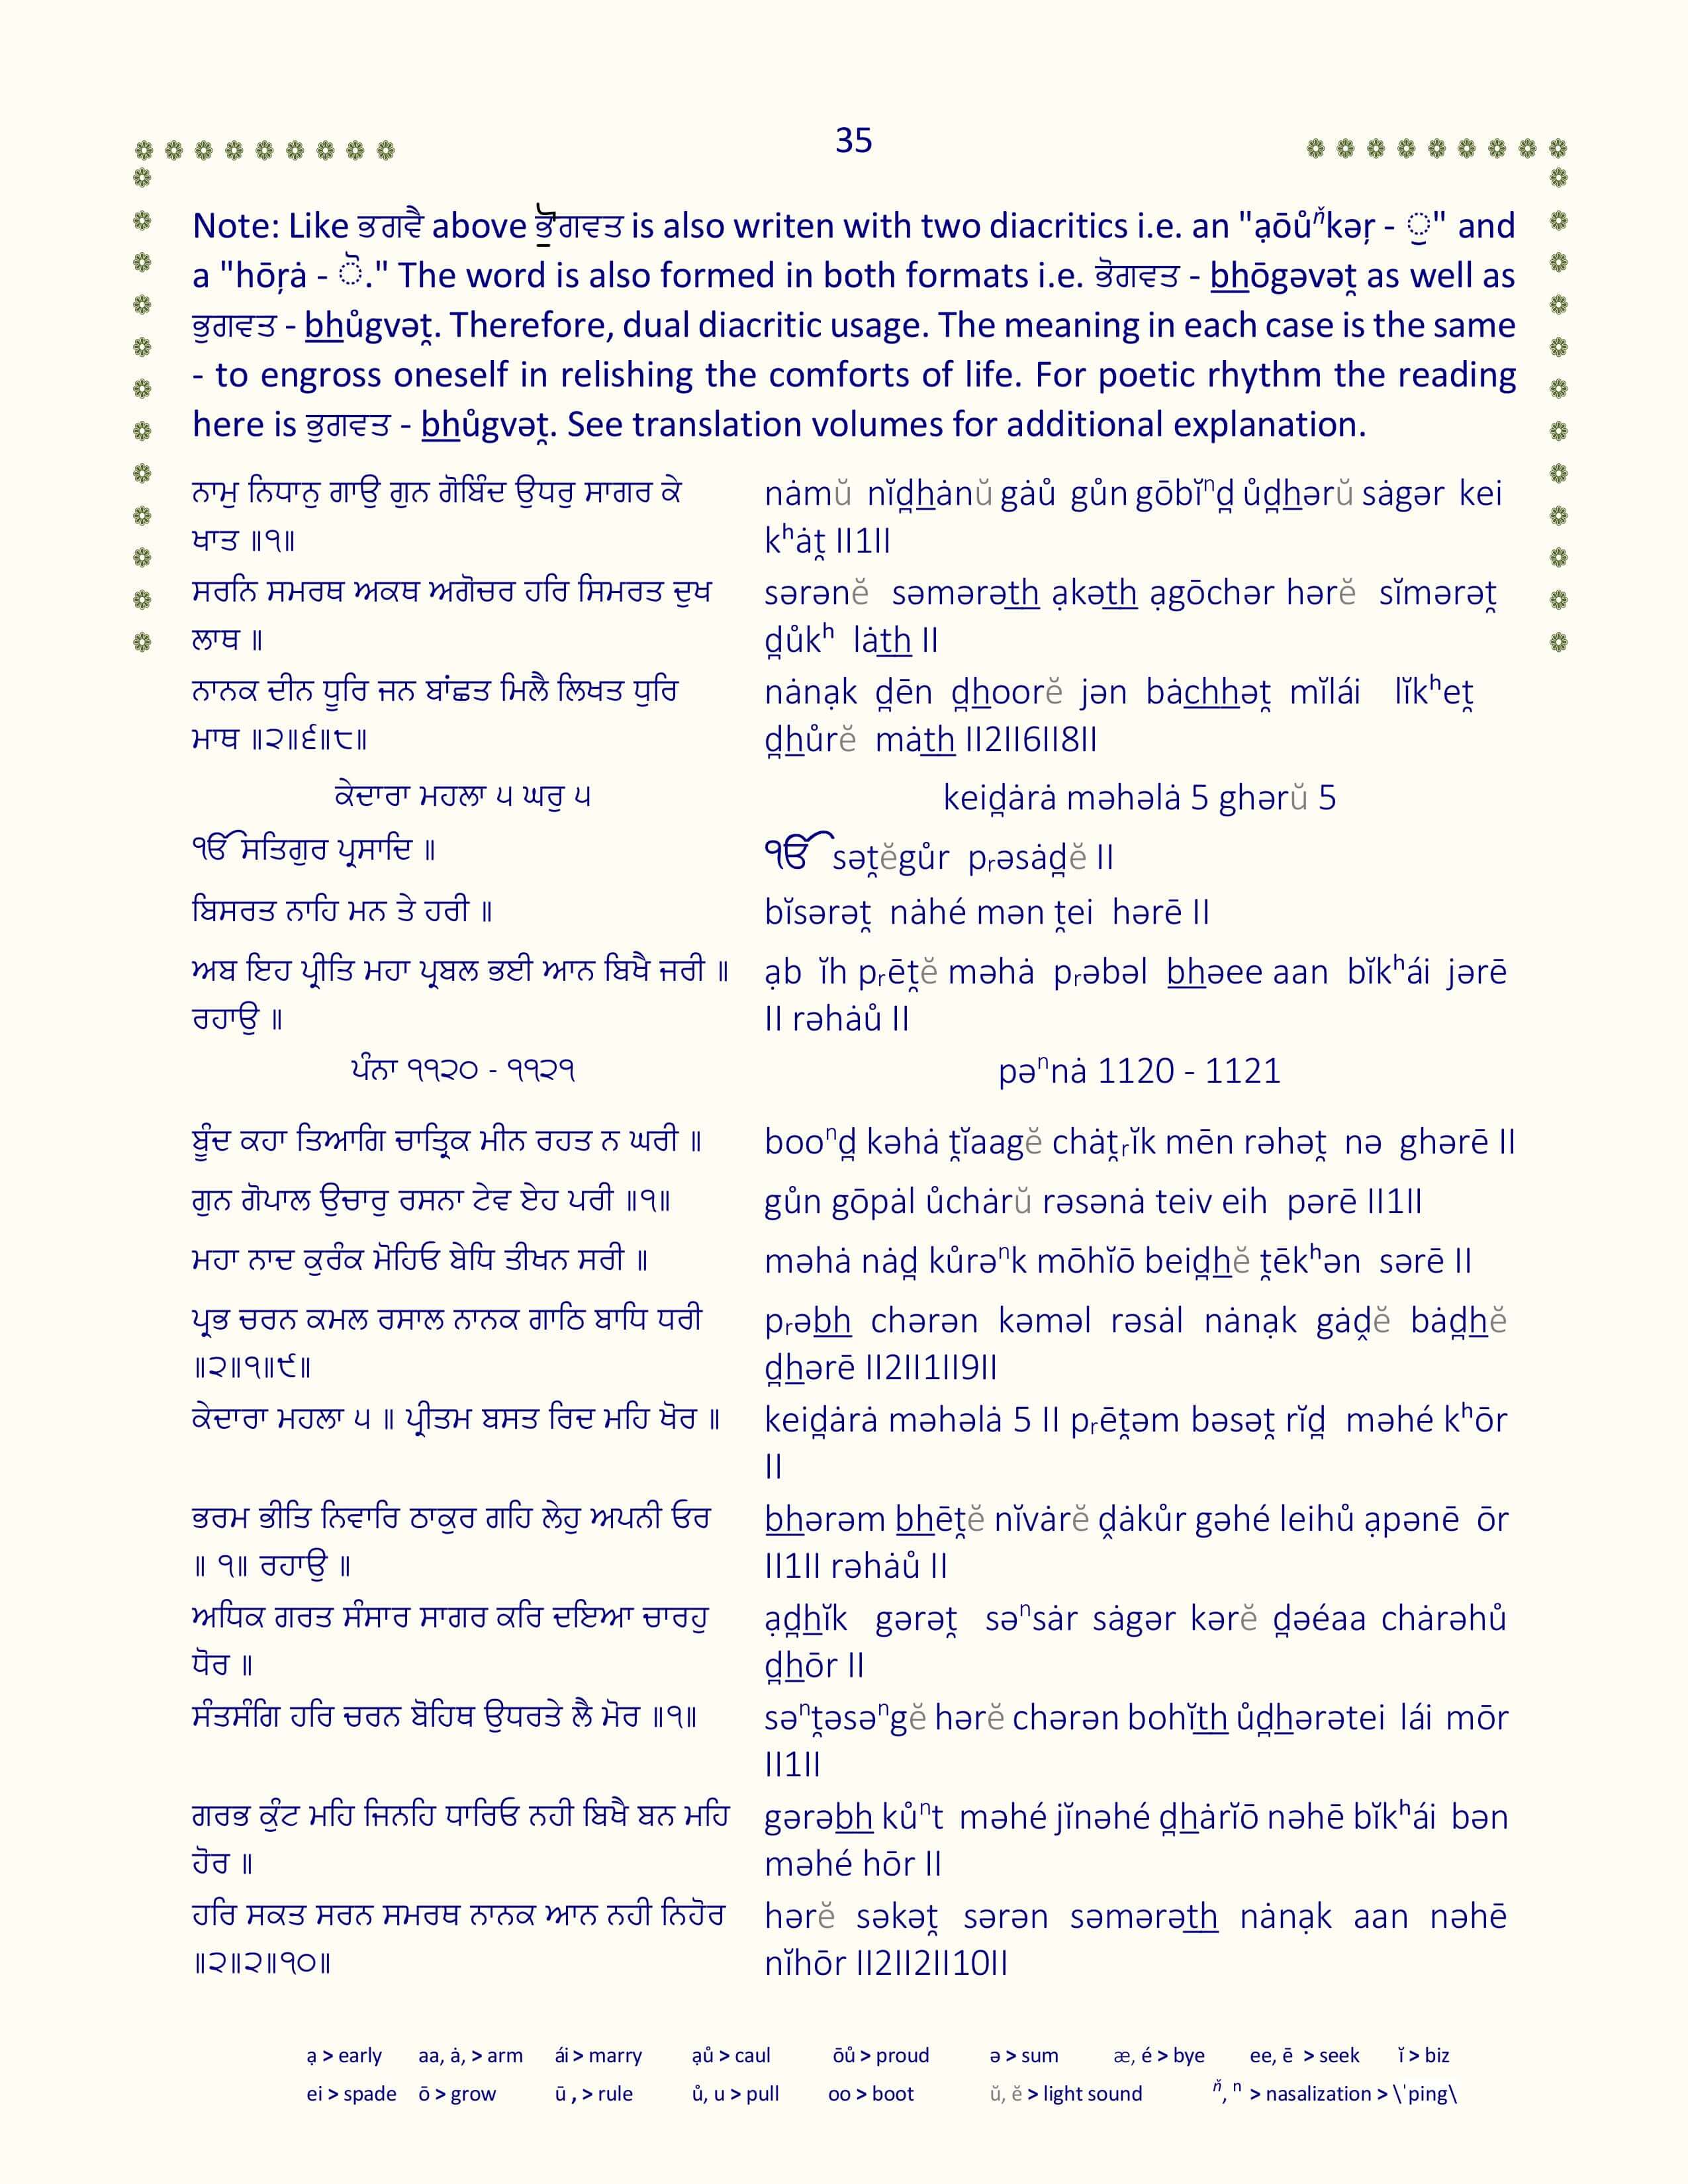 35
Note: Like ਭਗਵੈ above ਭੋੁਗਵਤ is also writen with two diacritics i.e. an "ạōůᵑ̌kəŗ - ੁ" and
a "hōŗȧ - ੋ." The word is also formed in both formats i.e. ਭੋਗਵਤ - b͟hōgəvət̯ as well as
ਭੁਗਵਤ - b͟hůgvət̯. Therefore, dual diacritic usage. The meaning in each case is the same
- to engross oneself in relishing the comforts of life. For poetic rhythm the reading
here is ਭੁਗਵਤ - b͟hůgvət̯. See translation volumes for additional explanation.
ਨਾਮੁ ਨਿਧਾਨੁ ਗਾਉ ਗੁਨ ਗੋਬਿੰਦ ਉਧਰੁ ਸਾਗਰ ਕੇ
ਖਾਤ ॥੧॥
nȧmŭ nĭd̪h͟ȧnŭ gȧů gůn gōbĭⁿd̪ ůd̪h͟ərŭ sȧgər kei
kʰȧt̯ II1II
ਸਰਨਿ ਸਮਰਥ ਅਕਥ ਅਗੋਚਰ ਹਰਿ ਸਿਮਰਤ ਦੁਖ
ਲਾਥ ॥
sərənĕ səmərət͟h ạkət͟h ạgōchər hərĕ sĭmərət̯
d̪ůkʰ lȧt͟h II
ਨਾਨਕ ਦੀਨ ਧੂਰਿ ਜਨ ਬਾਂਛਤ ਮਿਲੈ ਲਿਖਤ ਧੁਰਿ
ਮਾਥ ॥੨॥੬॥੮॥
nȧnạk d̪ēn d̪h͟oorĕ jən bȧc͟h͟hət̯ mĭlái lĭkʰet̯
d̪h͟ůrĕ mȧt͟h II2II6II8II
ਕੇਦਾਰਾ ਮਹਲਾ ੫ ਘਰੁ ੫
keid̪ȧrȧ məhəlȧ 5 ghərŭ 5
ੴ ਸਤਿਗੁਰ ਪ੍ਰਸਾਦਿ ॥
ੴ sət̯ĕgůr pᵣəsȧd̪ĕ II
ਬਿਸਰਤ ਨਾਹਿ ਮਨ ਤੇ ਹਰੀ ॥
bĭsərət̯ nȧhé mən t̯ei hərē II
ਅਬ ਇਹ ਪ੍ਰੀਤਿ ਮਹਾ ਪ੍ਰਬਲ ਭਈ ਆਨ ਬਿਖੈ ਜਰੀ ॥
ਰਹਾਉ ॥
ạb ĭh pᵣēt̯ĕ məhȧ pᵣəbəl b͟həee aan bĭkʰái jərē
II rəhȧů II
ਪੰਨਾ ੧੧੨੦ - ੧੧੨੧
pəⁿnȧ 1120 - 1121
ਬੂੰਦ ਕਹਾ ਤਿਆਗਿ ਚਾਤ੍ਰਿਕ ਮੀਨ ਰਹਤ ਨ ਘਰੀ ॥
booⁿd̪ kəhȧ t̯ĭaagĕ chȧt̯ᵣĭk mēn rəhət̯ nə ghərē II
ਗੁਨ ਗੋਪਾਲ ਉਚਾਰੁ ਰਸਨਾ ਟੇਵ ਏਹ ਪਰੀ ॥੧॥
gůn gōpȧl ůchȧrŭ rəsənȧ teiv eih pərē II1II
ਮਹਾ ਨਾਦ ਕੁਰੰਕ ਮੋਹਿਓ ਬੇਧਿ ਤੀਖਨ ਸਰੀ ॥
məhȧ nȧd̪ kůrəⁿk mōhĭō beid̪h͟ĕ t̯ēkʰən sərē II
ਪ੍ਰਭ ਚਰਨ ਕਮਲ ਰਸਾਲ ਨਾਨਕ ਗਾਠਿ ਬਾਧਿ ਧਰੀ
॥੨॥੧॥੯॥
pᵣəb͟h chərən kəməl rəsȧl nȧnạk gȧd̯ĕ bȧd̪h͟ĕ
d̪h͟ərē II2II1II9II
ਕੇਦਾਰਾ ਮਹਲਾ ੫ ॥ ਪ੍ਰੀਤਮ ਬਸਤ ਰਿਦ ਮਹਿ ਖੋਰ ॥
keid̪ȧrȧ məhəlȧ 5 II pᵣēt̯əm bəsət̯ rĭd̪ məhé kʰōr
II
ਭਰਮ ਭੀਤਿ ਨਿਵਾਰਿ ਠਾਕੁਰ ਗਹਿ ਲੇਹੁ ਅਪਨੀ ਓਰ
॥ ੧॥ ਰਹਾਉ ॥
b͟hərəm b͟hēt̯ĕ nĭvȧrĕ d̯ȧkůr gəhé leihů ạpənē ōr
II1II rəhȧů II
ਅਧਿਕ ਗਰਤ ਸੰਸਾਰ ਸਾਗਰ ਕਰਿ ਦਇਆ ਚਾਰਹੁ
ਧੋਰ ॥
ạd̪h͟ĭk gərət̯ səⁿsȧr sȧgər kərĕ d̪əéaa chȧrəhů
d̪h͟ōr II
ਸੰਤਸੰਗਿ ਹਰਿ ਚਰਨ ਬੋਹਿਥ ਉਧਰਤੇ ਲੈ ਮੋਰ ॥੧॥
səⁿt̯əsəⁿgĕ hərĕ chərən bohĭt͟h ůd̪h͟ərətei lái mōr
II1II
ਗਰਭ ਕੁੰਟ ਮਹਿ ਜਿਨਹਿ ਧਾਰਿਓ ਨਹੀ ਬਿਖੈ ਬਨ ਮਹਿ
ਹੋਰ ॥
gərəb͟h kůⁿt məhé jĭnəhé d̪h͟ȧrĭō nəhē bĭkʰái bən
məhé hōr II
ਹਰਿ ਸਕਤ ਸਰਨ ਸਮਰਥ ਨਾਨਕ ਆਨ ਨਹੀ ਨਿਹੋਰ
॥੨॥੨॥੧੦॥
hərĕ səkət̯ sərən səmərət͟h nȧnạk aan nəhē
nĭhōr II2II2II10II
ạ > early aa, ȧ, > arm ái > marry ạů > caul ōů > proud ə > sum æ, é > bye ee, ē > seek ĭ > biz
ei > spade ō > grow ū , > rule ů, u > pull oo > boot ŭ, ĕ > light sound ň, ⁿ > nasalization > \ˈping\